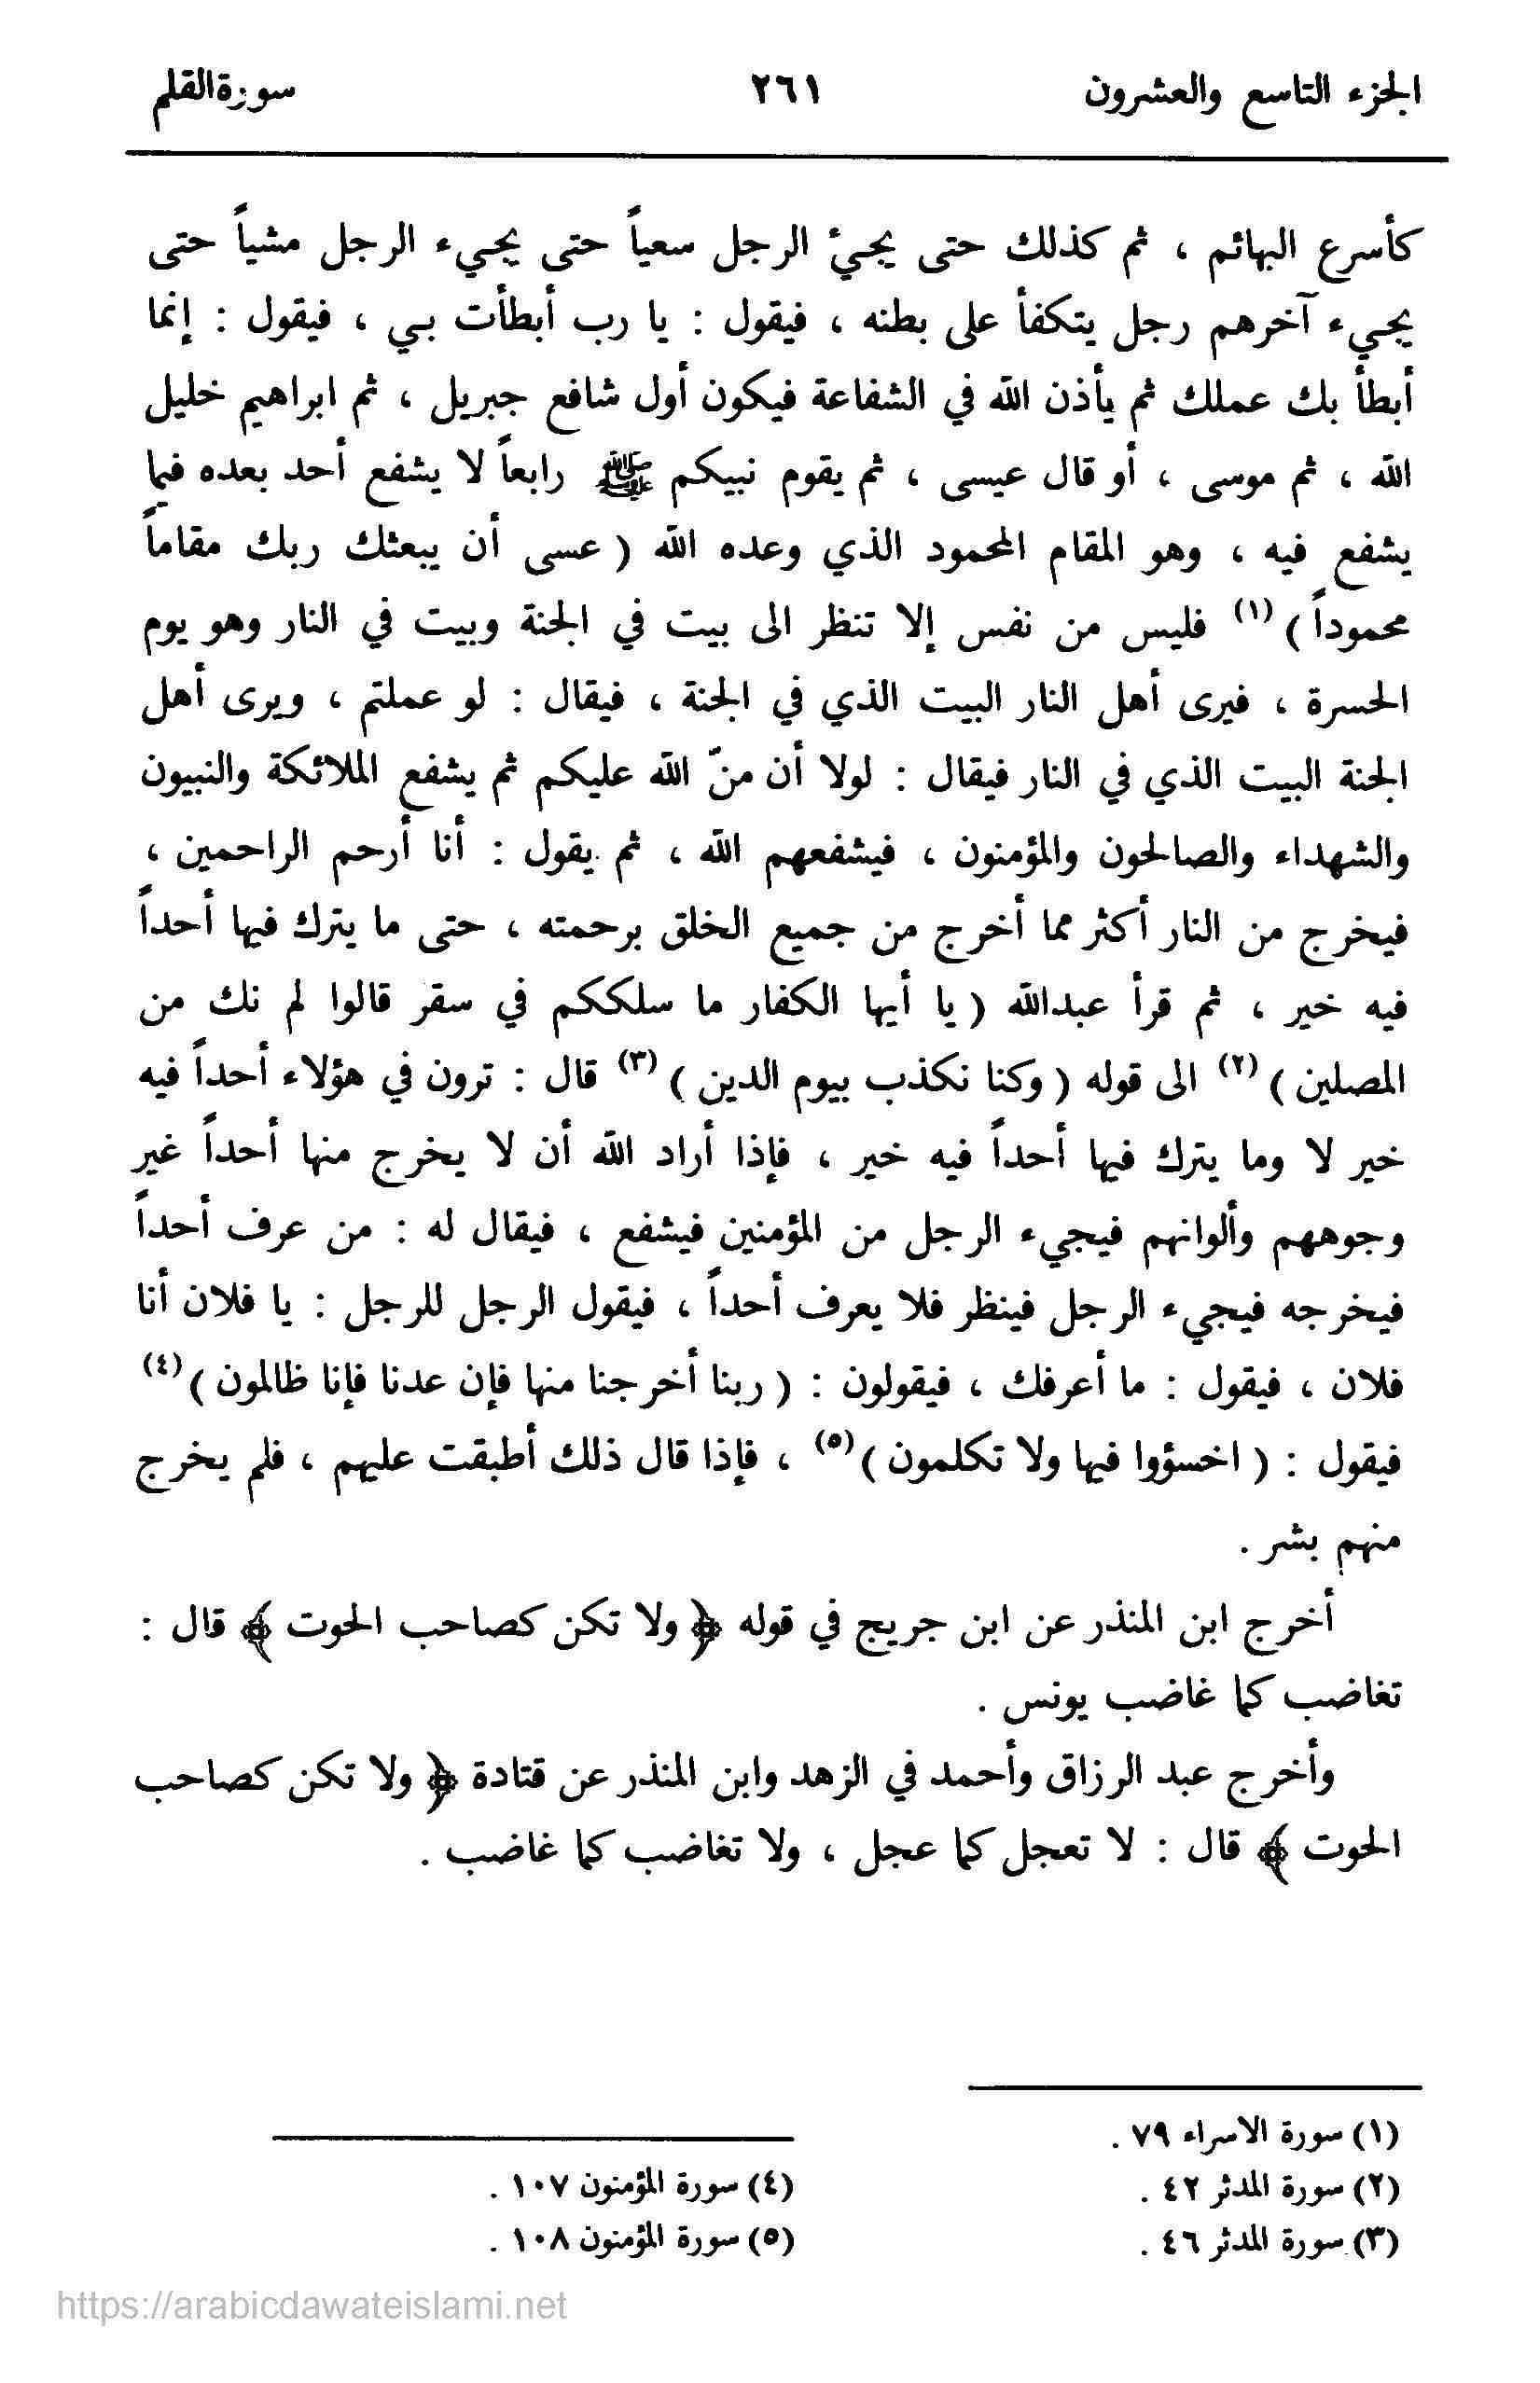 الجزء التاسع والعشرون ٢٦١ سورة القلم
كأسرع البهائم ، ثم كذلك حتى يجيءُ الرجل سعياً حتى يجيء الرجل مشياً حتى
يجيء آخرهم رجل يتكفأ على بطنه ، فيقول : يا رب أبطأت بي ، فيقول : إنما
أبطأ بك عملك ثم يأذن الله في الشفاعة فيكون أول شافع جبريل ، ثم ابراهيم خليل
الله ، ثم موسى ، أو قال عيسى ، ثم يقوم نبيكم ﷺ رابعاً لا يشفع أحد بعده فيما
يشفع فيه ، وهو المقام المحمود الذي وعده الله ( عسى أن يبعثك ربك مقاماً
محموداً ) (١) فليس من نفس إلا تنظر الى بيت في الجنة وبيت في النار وهو يوم
الحسرة ، فيرى أهل النار البيت الذي في الجنة ، فيقال : لو عملتم ، ويرى أهل
الجنة البيت الذي في النار فيقال : لولا أن منّ الله عليكم ثم يشفع الملائكة والنبيون
والشهداء والصالحون والمؤمنون ، فيشفعهم الله ، ثم يقول : أنا أرحم الراحمين ،
فيخرج من النار أكثر مما أخرج من جميع الخلق برحمته ، حتى ما يترك فيها أحداً
فيه خير ، ثم قرأ عبدالله ( يا أيها الكفار ما سلككم في سقر قالوا لم نك من
المصلين ) (٢) الى قوله ( وكنا نكذب بيوم الدين ) (٣) قال : ترون في هؤلاء أحداً فيه
خير لا وما يترك فيها أحداً فيه خير ، فإذا أراد الله أن لا يخرج منها أحداً غير
وجوههم وألوانهم فيجيء الرجل من المؤمنين فيشفع ، فيقال له : من عرف أحداً
فيخرجه فيجيء الرجل فينظر فلا يعرف أحداً ، فيقول الرجل للرجل : يا فلان أنا
فلان ، فيقول : ما أعرفك ، فيقولون : ( ربنا أخرجنا منها فإن عدنا فإنا ظالمون ) (٤)
فيقول : ( اخسؤوا فيها ولا تكلمون ) (٥) ، فإذا قال ذلك أطبقت عليهم ، فلم يخرج
منهم بشر .
أخرج ابن المنذر عن ابن جريج في قوله ﴿ ولا تكن كصاحب الحوت ﴾ قال :
تغاضب كما غاضب يونس .
وأخرج عبد الرزاق وأحمد في الزهد وابن المنذر عن قتادة ﴿ ولا تكن كصاحب
الحوت ﴾ قال : لا تعجل كما عجل ، ولا تغاضب كما غاضب .
(١) سورة الاسراء ٧٩ .
(٢) سورة المدثر ٤٢ .
(٣) سورة المدثر ٤٦ .
(٤) سورة المؤمنون ١٠٧ .
(٥) سورة المؤمنون ١٠٨ .
https://arabicdawateislami.net